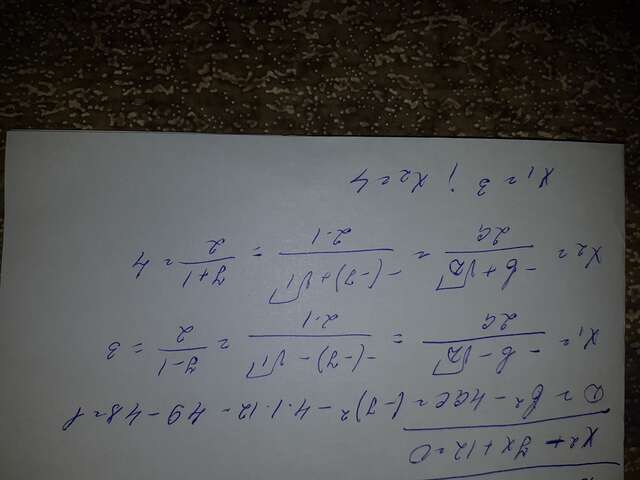 x² - 7x + 12 = 0
D = b² - 4ac = (-7)² - 4·1·12 = 49 - 48 = 1
x₁ = (-b - √D)/2a = (-(-7) - √1)/2·1 = (7 - 1)/2 = 3
x₂ = (-b + √D)/2a = (-(-7) + √1)/2·1 = (7 + 1)/2 = 4
x₁ = 3 ; x₂ = 4